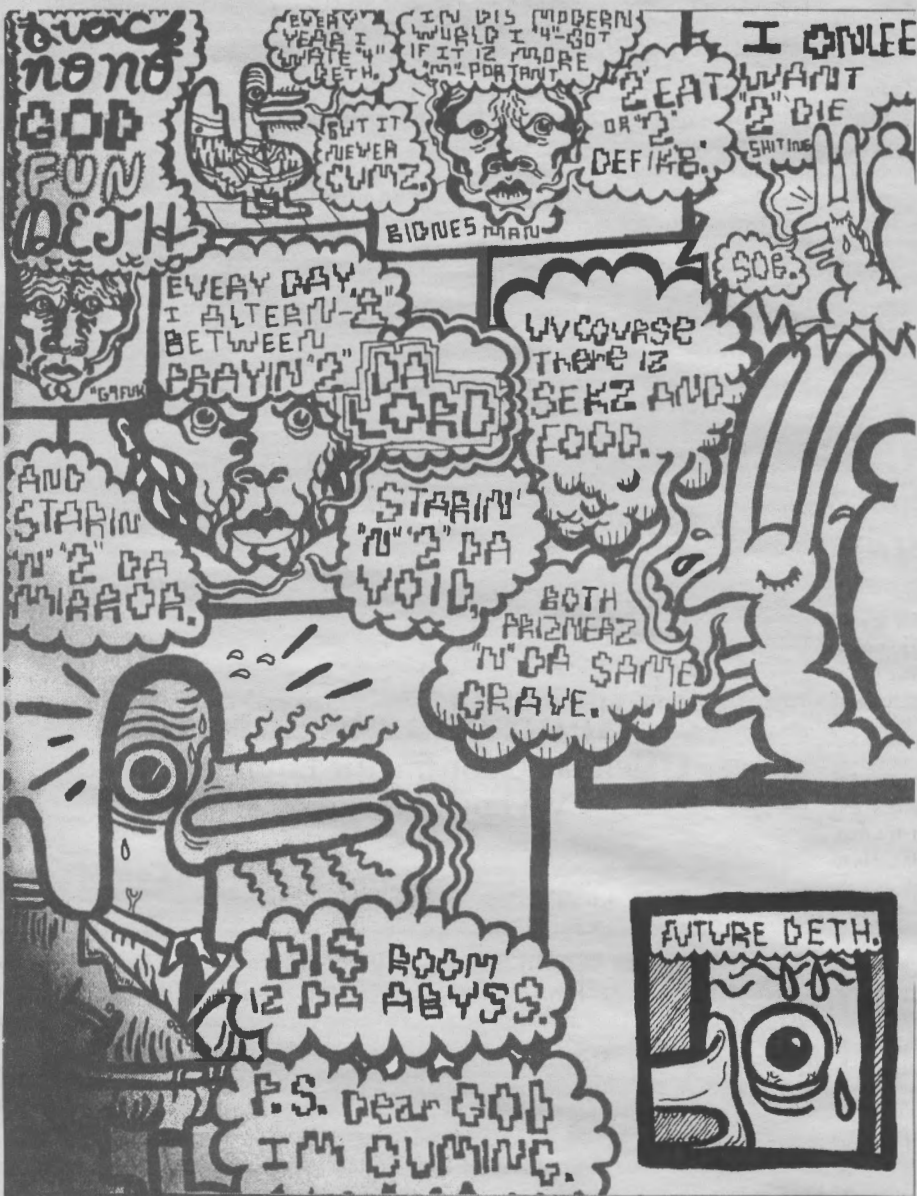 NO NO
GOD
FUN
DETH
EVERY
YEAR I
WATE "4"
DETH.
BUT IT
NEVER
CUMZ.
IN DIS MODERN
WURLD I "4"-GOT
IF IT IZ MORE
"M"-PORTANT
"2" EAT
OR "2"
BIDNESMAN
I ONLEE
WANT
"2" DIE
SHITING
SOB.
EVERY DAY,
I ALTERN-"8"
BETWEEN
PRAYIN "2"
DA
LORD
STARIN'
"N" "2" DA
VOID,
AND
STARIN
"N" "2" DA
MIRROR.
UV COURSE
THERE IZ
SEKZ AND
FOOD.
BOTH
PRIZNERZ
"N" DA SAME
GRAVE.
DIS ROOM
IZ DA ABYSS.
P.S. Dear GOD
IM CUMING.
FUTURE DETH.